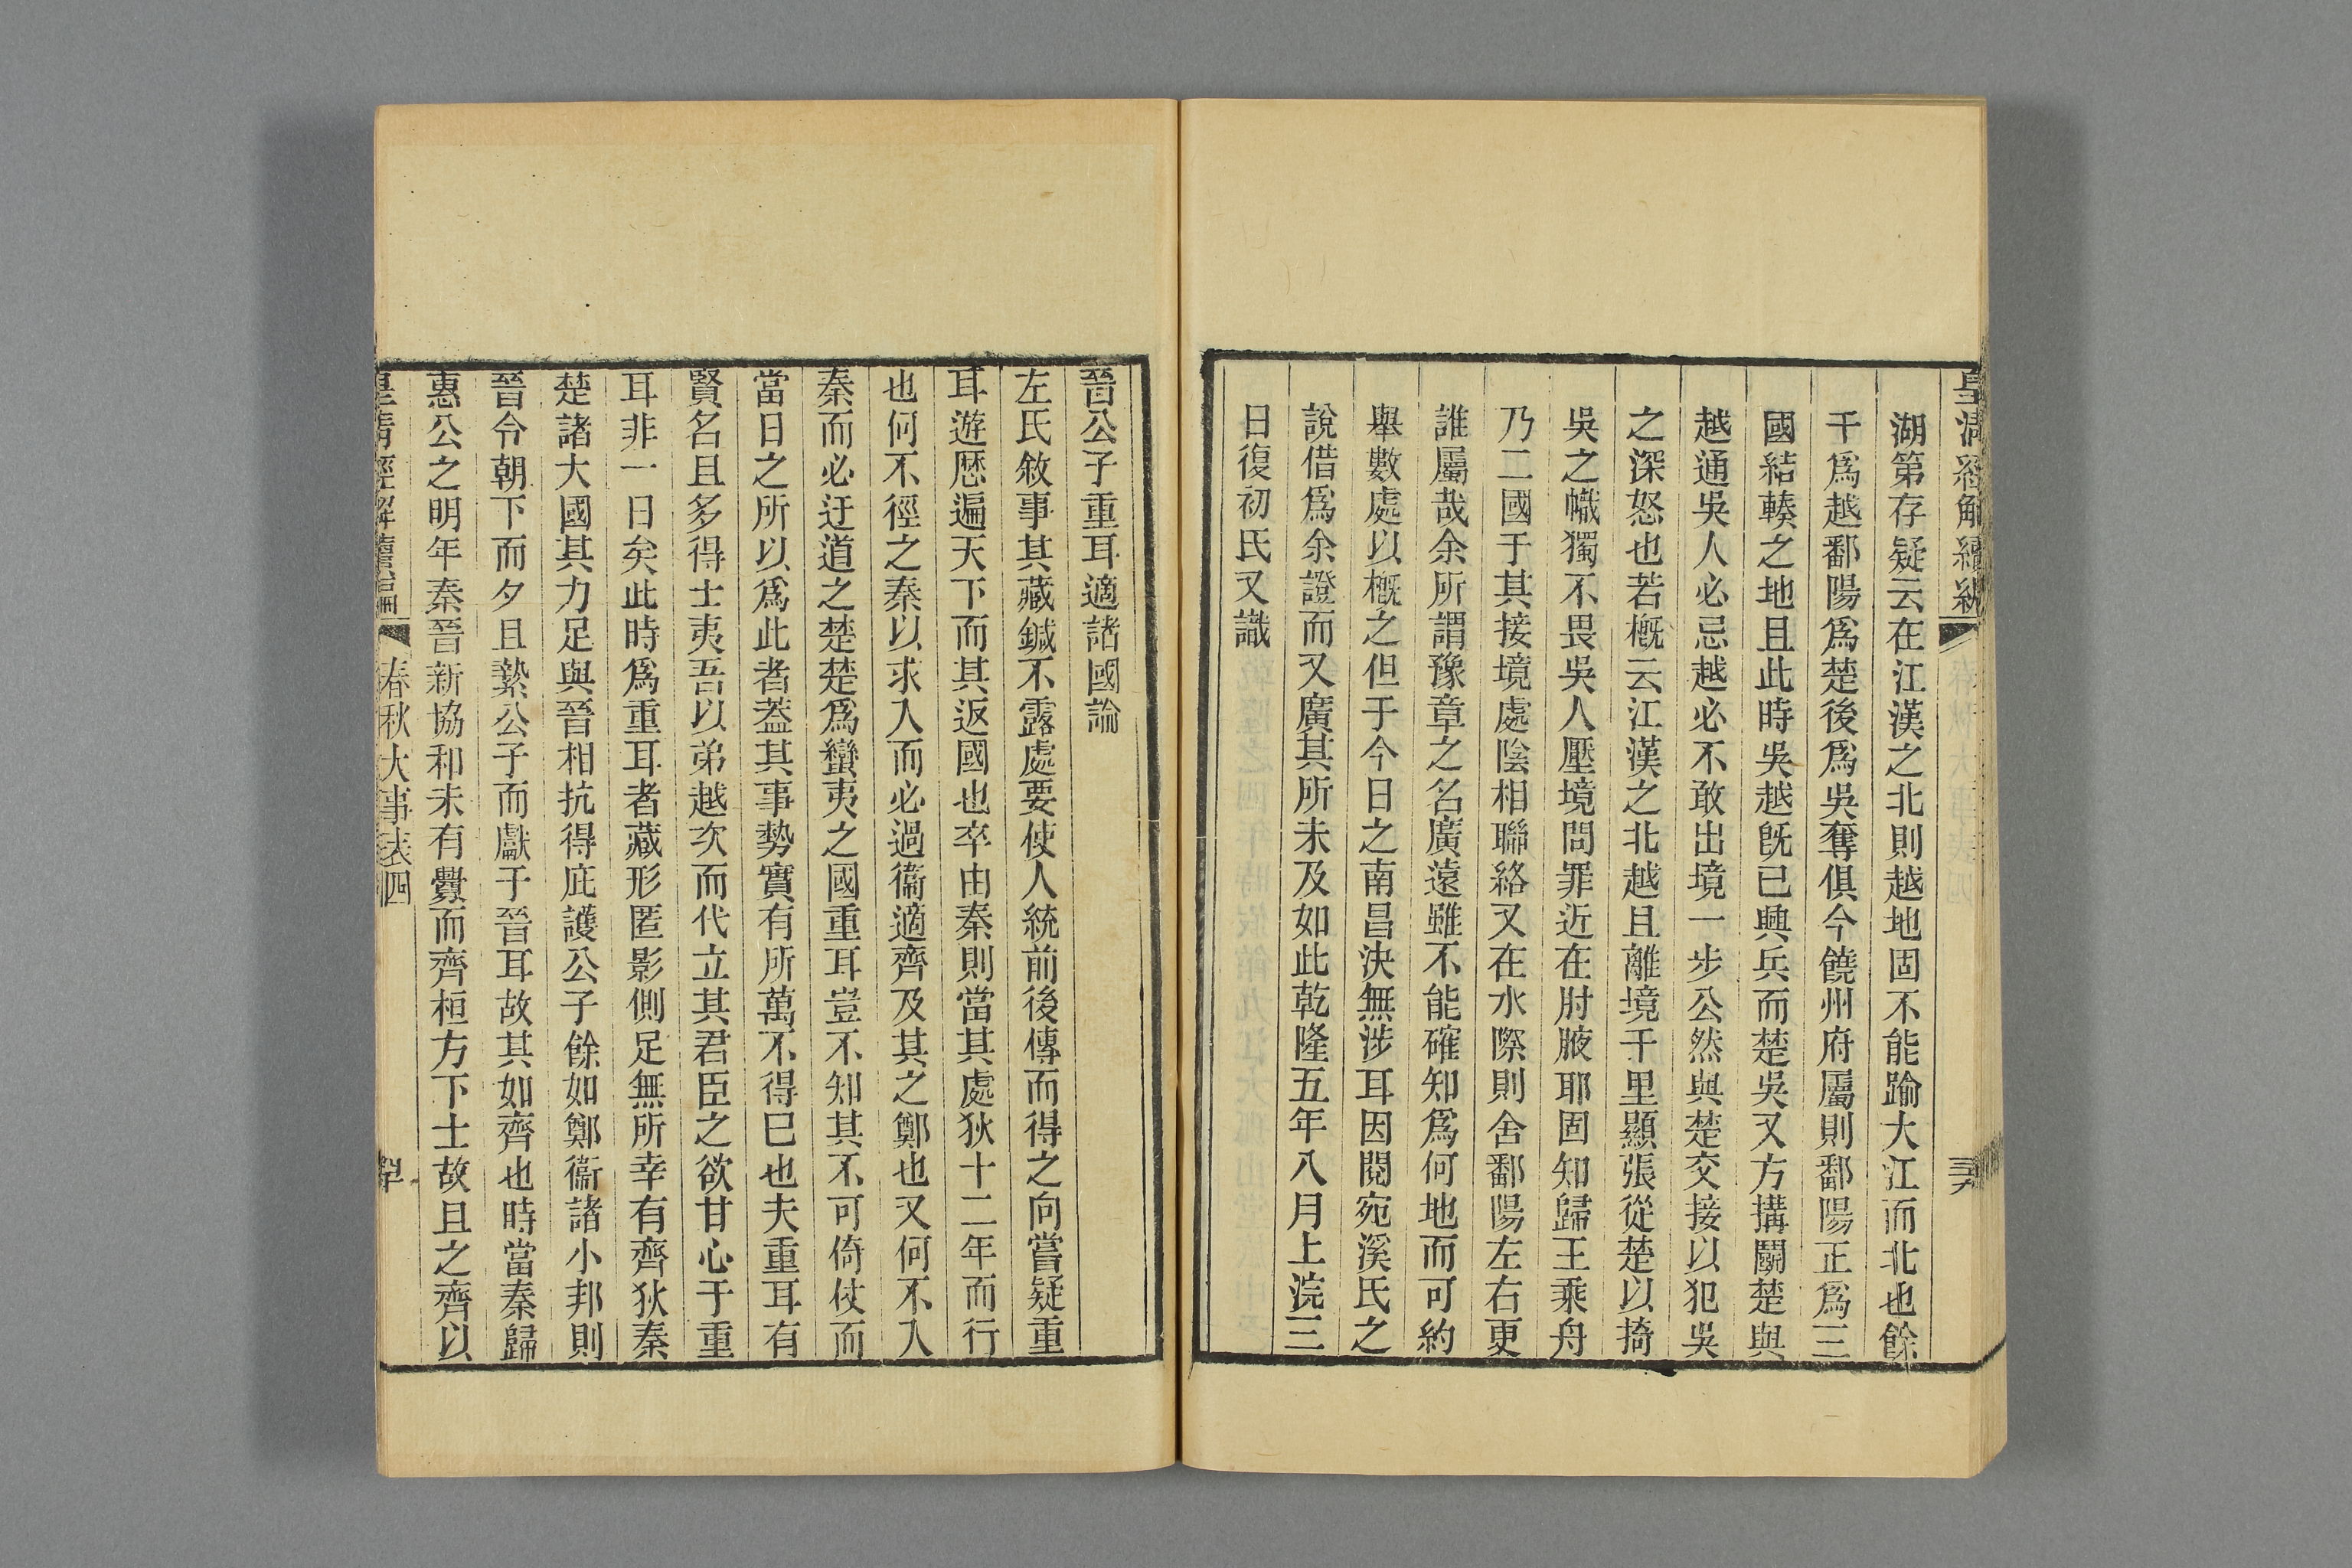 皇清經解續編
湖第存疑云在江漢之北則越地固不能踰大江而北也餘
干爲越鄱陽爲楚後爲吳奪俱今饒州府屬則鄱陽正爲三
國結轃之地且此時吳越旣已興兵而楚吳又方搆鬬楚與
越通吳人必忌越必不敢出境一步公然與楚交接以犯吳
之深怒也若槪云江漢之北越且離境千里顯張從楚以掎
吳之幟獨不畏吳人壓境問罪近在肘腋耶固知歸王乘舟
乃二國于其接境處陰相聯絡又在水際則舍鄱陽左右更
誰屬哉余所謂豫章之名廣遠雖不能確知爲何地而可約
舉數處以槪之但于今日之南昌決無涉耳因閱宛溪氏之
說借爲余證而又廣其所未及如此乾隆五年八月上浣三
日復初氏又識
晉公子重耳適諸國論
左氏敘事其藏鍼不露處要使人統前後傳而得之向嘗疑重
耳遊歷遍天下而其返國也卒由秦則當其處狄十二年而行
也何不徑之秦以求入而必過衞適齊及其之鄭也又何不入
秦而必迂道之楚楚爲蠻夷之國重耳豈不知其不可倚仗而
當日之所以爲此者蓋其事勢實有所萬不得已也夫重耳有
賢名且多得士夷吾以弟越次而代立其君臣之欲甘心于重
耳非一日矣此時爲重耳者藏形匿影側足無所幸有齊狄秦
楚諸大國其力足與晉相抗得庇護公子餘如鄭衞諸小邦則
晉令朝下而夕且縶公子而獻于晉耳故其如齊也時當秦歸
惠公之明年秦晉新協和未有釁而齊桓方下士故且之齊以
皇清經解續編 春秋大事表四